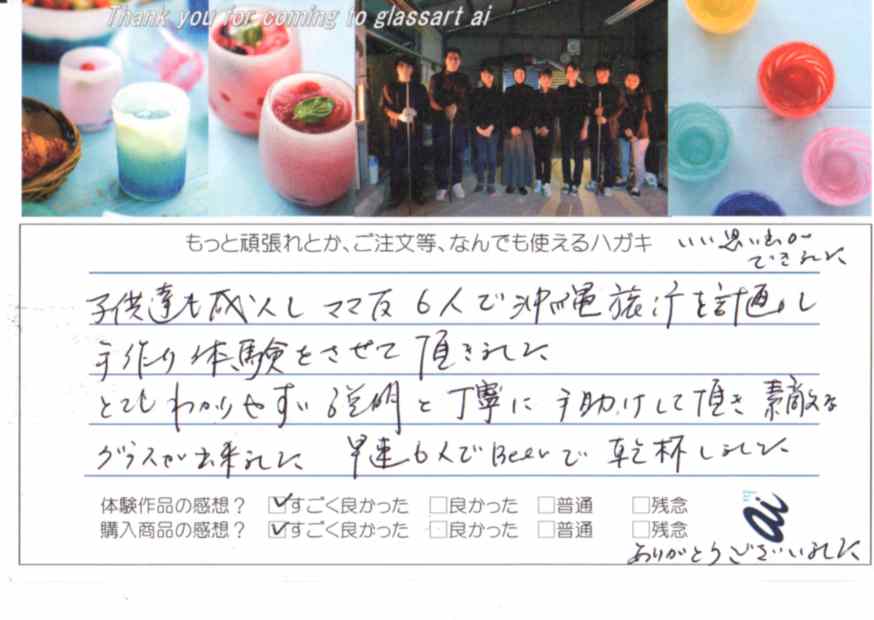 Thank you for coming to glassart ai
もっと頑張れとか、ご注文等、なんでも使えるハガキ
いい思い出が
できました
子供達も成人し ママ友 6人で沖縄旅行を計画し
手作り体験をさせて頂きました
とてもわかりやすい説明と丁寧に手助けして頂き 素敵な
グラスが出来ました 早速6人でBeerで乾杯しました
体験作品の感想? ☑すごく良かった □良かった □普通 □残念
購入商品の感想? ☑すごく良かった □良かった □普通 □残念
ai
ありがとうございました